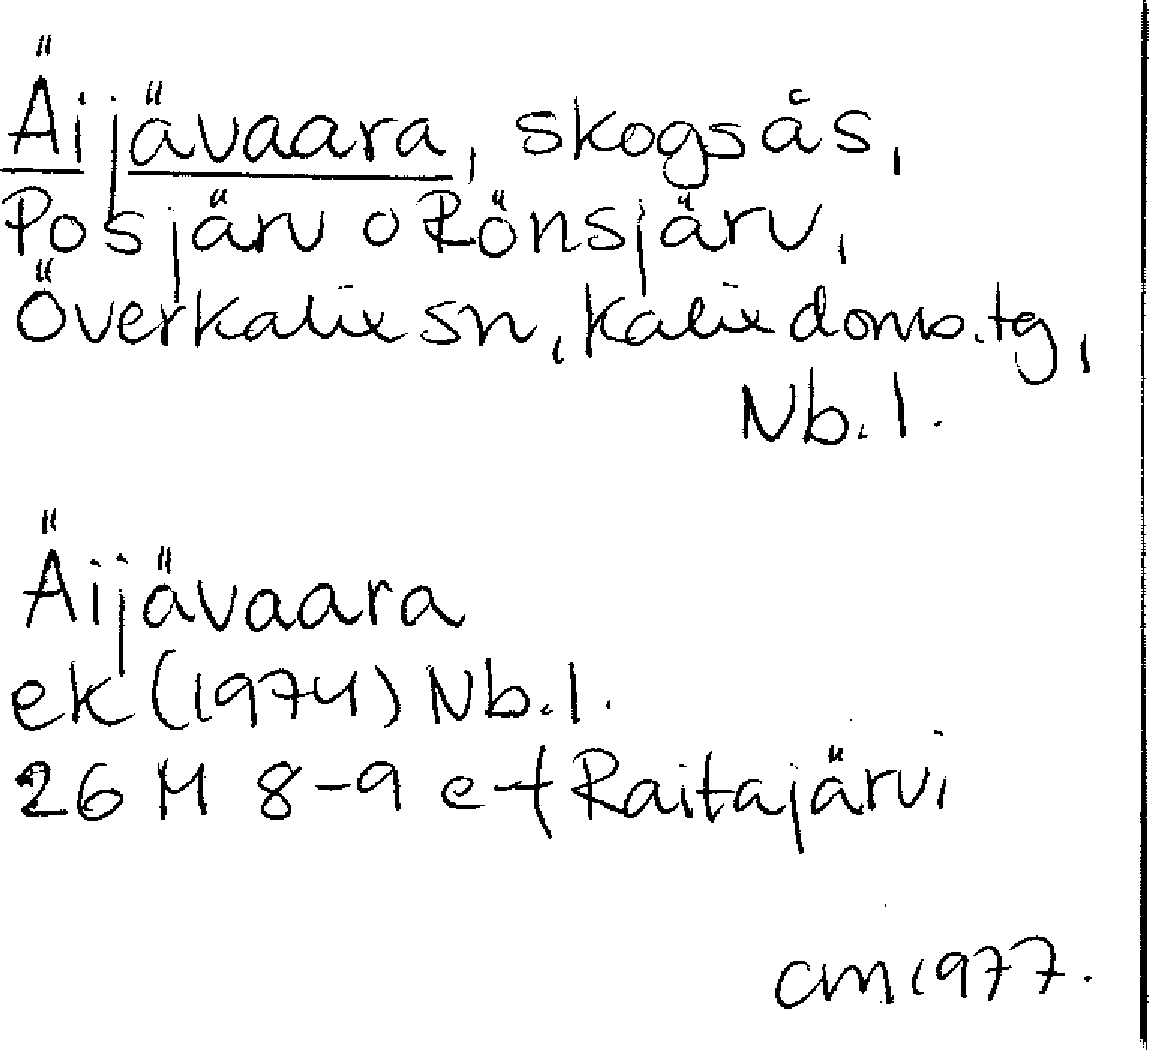 Äijävaara, skogsås,
Posjärv o Rönsjärv,
Överkalix sn, Kalix doms.tg,
Nb.l.
Äijävaara
ek (1974) Nb.l.
26 M 8-9 e-f Raitajärvi
CM 1977.